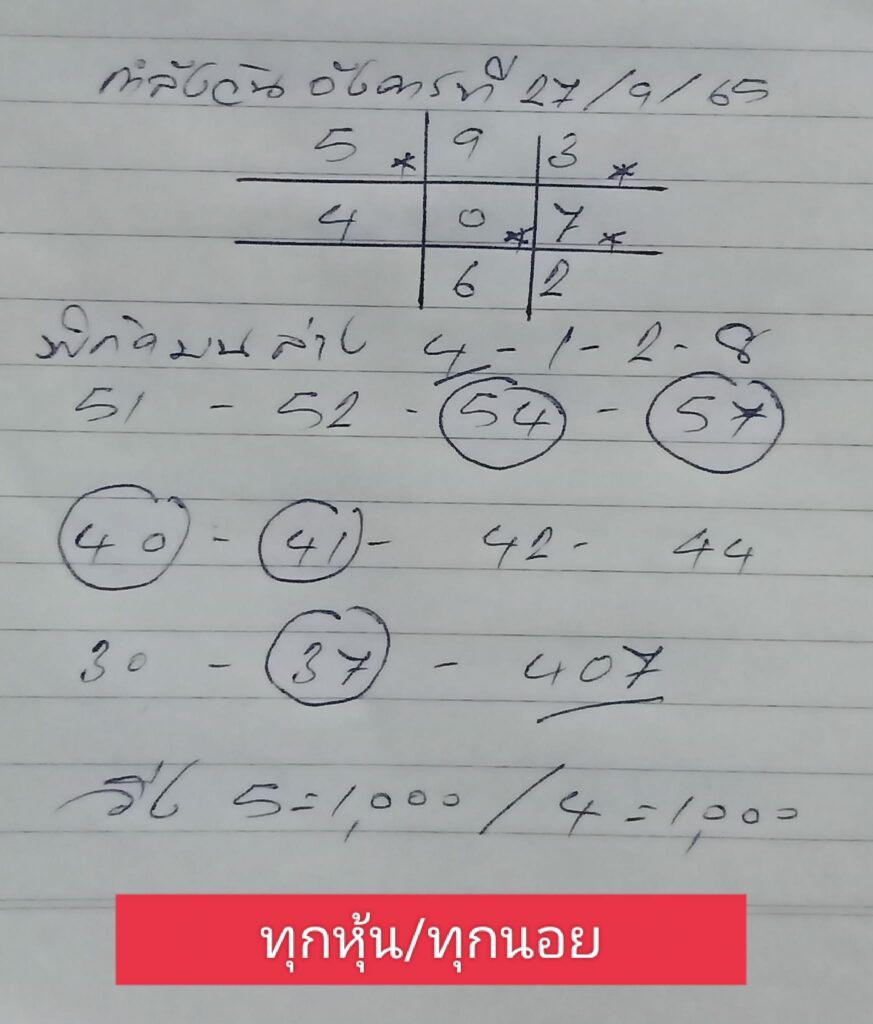 กำลังวัน อังคารที่ 27/9/65
5 * 9 3 *
4 0 * 7 *
6 2
พิกัดบน ล่าง 4-1-2-8
51 - 52 - 54 - 57
40 - 41 - 42 - 44
30 - 37 - 407
วิ่ง 5=1,000 / 4=1,000
ทุกหุ้น/ทุกนอย